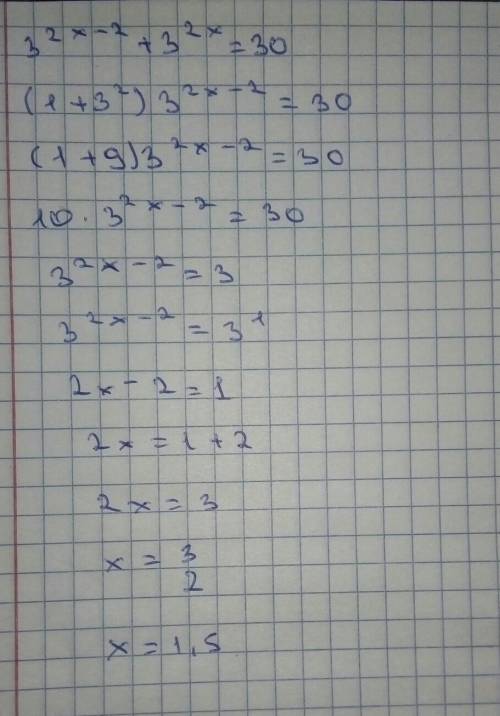 3^{2x-2} + 3^{2x} = 30
(1 + 3^2) 3^{2x-2} = 30
(1 + 9) 3^{2x-2} = 30
10 · 3^{2x-2} = 30
3^{2x-2} = 3
3^{2x-2} = 3^1
2x - 2 = 1
2x = 1 + 2
2x = 3
x = 3/2
x = 1,5